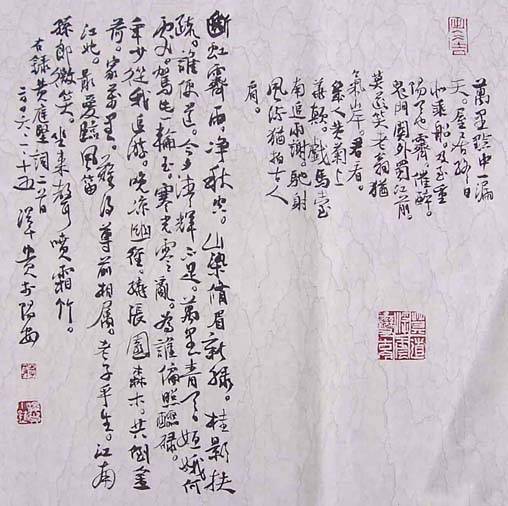 萬里黔中一漏
天。屋居終日
似乘船。及至重
陽天也霽。催醉。
鬼門關外蜀江前。
莫笑老翁猶
氣岸。君看。
幾人黃菊上
華顛。戲馬臺
南追兩謝馳射
風流猶拍古人
肩。
斷虹霽雨。淨秋空。山染修眉新綠。桂影扶
疏。誰便道。今夕清輝不足。萬里青天。姮娥何
處。駕此一輪玉。寒光零亂。為誰偏照醽醁。
年少從我追游。晚涼幽徑。繞張園森木。共倒金
荷。家萬里。難得尊前相屬。老子平生。江南
江北。最愛臨風笛
孫郎微笑。坐來聲噴霜竹。
右錄黃庭堅詞二首